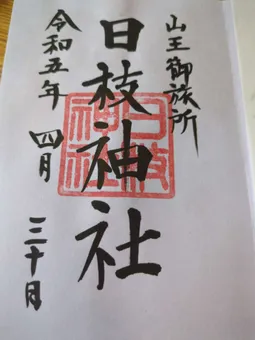 山王御旅所
日枝神社
日枝
神社
令和五年 四月 三十日